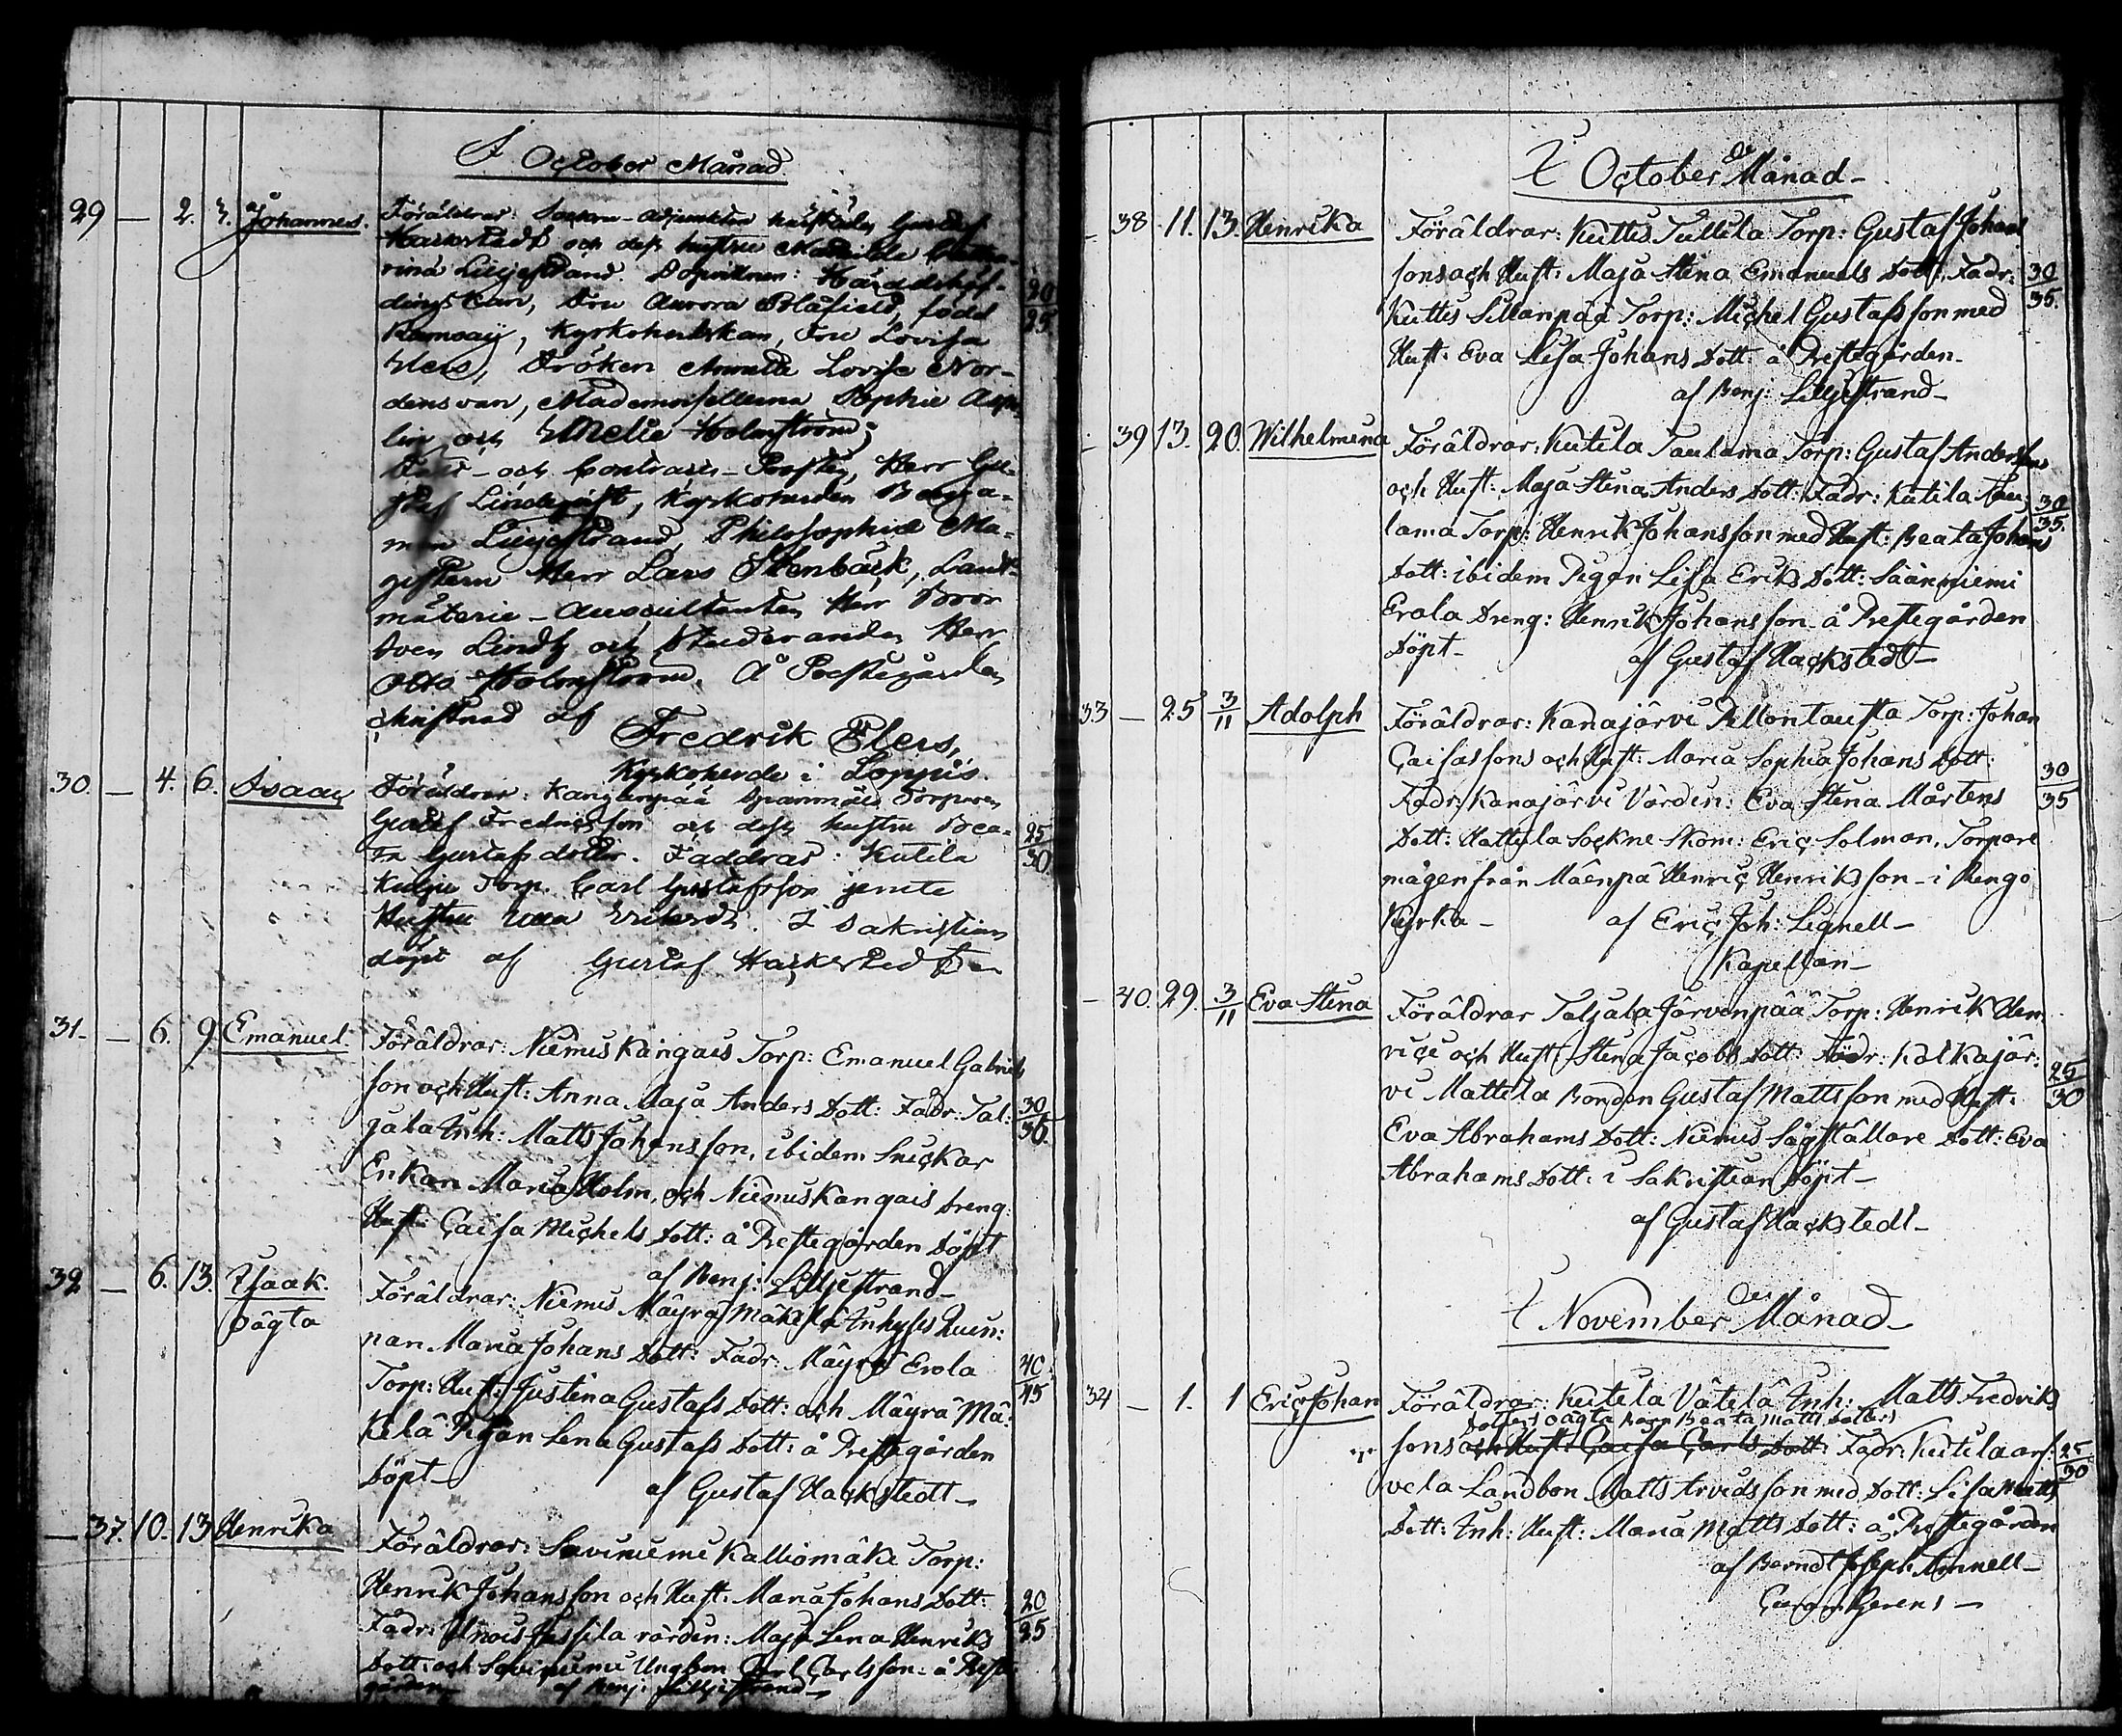 I October Månad.
29 — 2. 3. Johannes. Föräldrar: Sockne-Adjunkten Gustaf
Hackstedt och dess hustru Mathilda Catha-
rina Liljestrand. Häradshöf-
dingskan, Fru Aurora Blåfield, född 20/25
Ramsay, Kyrkoherdskan, Fru Lovisa
Elers, Fröken Annette Lovise Nor-
densvan, Mademoisellerna Sophie
lin och Holmström;
och Contracts-Prosten, Herr Gu-
staf Kyrkoherden Benja-
min Liljestrand, Philosophiæ Ma-
gistern Herr Lars Stenbäck, Landt-
mäterie-Auscultanten Herr Bror
Sven Lindh och Studeranden Herr
Otto Holmström. Å Prestegården
christnad af
Fredrik Elers,
Kyrkoherde i Loppis.
30. — 4. 6. Isaac Föräldrar: Kangenpää Torparen
Gustaf Fredricsson och dess hustru Bea- 25/30
ta Gustafsdotter. Faddrar: Kutila
Torp. Carl Gustafsson jemte
Hustru Ulla I Sakristian
döpt af Gustaf Hackstedt
31. — 6. 9 Emanuel. Föräldrar: Niemis Kangais Torp: Emanuel Gabriels
son och Hust: Anna Maja Anders Dott: Fadr: Tal: 30/35
jala Inh: Matts Johansson, ibidem Snickar
Enkan Maria Holm, och Niemis Kangais Dreng:
Hust: Caisa Michels Dott: å Prestegården Döpt
af Benj: Liljestrand
32 — 6. 13. Isaak. Föräldrar: Niemis Mäyrä Mäkelä Inhyses Quin:
oägta nan Maria Johans Dott: Fadr: Mäyrä Erola 40/45
Torp: Hust: Justina Gustafs Dott: och Mäyrä Mä-
kelä Pigan Lena Gustafs Dott: å Prestegården
Döpt
af Gustaf Hackstedt
— 37. 10. 13 Henrika Föräldrar: Saviniemi Kalliomäki Torp:
Henrik Johansson och Hust: Maria Johans Dott: 20/25
Fadr: värden: Maja Lena Henriks
Dott: och Saviniemi Ungbon Carl Carlsson: å Preste
gården af Benj: Liljestrand
I October Månad
— 38. 11. 13. Henrika Föräldrar: Kuttis Tullila Torp: Gustaf Johans
sons och Hust: Maja Stina Emanuels Dott: Fadr: 30/35.
Kuttis Sillanpää Torp: Michel Gustafsson med
Hust: Eva Lisa Johans Dott: å Prestegården
af Benj: Liljestrand
— 39 13. 20. Wilhelmina Föräldrar: Kutila Taulama Torp: Gustaf Anderssons
och Hust: Maja Stina Anders Dott: Fadr: Kutila Tau 30/35.
lama Torp: Henrik Johansson med Hust: Beata Johans
Dott: ibidem Pigan Lisa Eriks Dott: Säänniemi
Erola Dreng: Henrik Johansson å Prestegården
Döpt
af Gustaf Hackstedt
33 — 25 3/11 Adolph Föräldrar: Kanajärvi Pellontausta Torp: Johan
Caisassons och Hust: Maria Sophia Johans Dott: 30/35
Fadr: Kanajärvi Värdin: Eva Stina Mårtens
Dott: Hattula Sockne Skom: Eric Solman, Torpare
mågen från Mäenpä Henric Henriksson i Rengo
Kyrka af Eric Joh: Lignell
Kapellan
— 40. 29. 3/11 Eva Stina Föräldrar Taljala Järvenpää Torp: Henrik Hen
rici och Hust: Stina Jacobs Dott: Fadr: Kalkajär: 25/30
vi Mattila Bonden Gustaf Mattsson med Hust:
Eva Abrahams Dott: Niemis Sågställare Dott: Eva
Abrahams Dott: i Sakristian Döpt
af Gustaf Hackstedt
I November Månad
34 — 1. 1 Eric Johan Föräldrar: Kutila Vätilä Inh: Matts Fredriks
Dotters oägta Barn Beata Matts Dotters
sons och Hust: Caisa Carls Dott: Fadr: Kutila arf: 25/30
vela Landbon Matts Arvidsson med Dott: Lisa Matts
Dott: Inh: Hust: Maria Matts Dott: å Prestegården
af Berndt Joseph Arnell
Curam Gerens